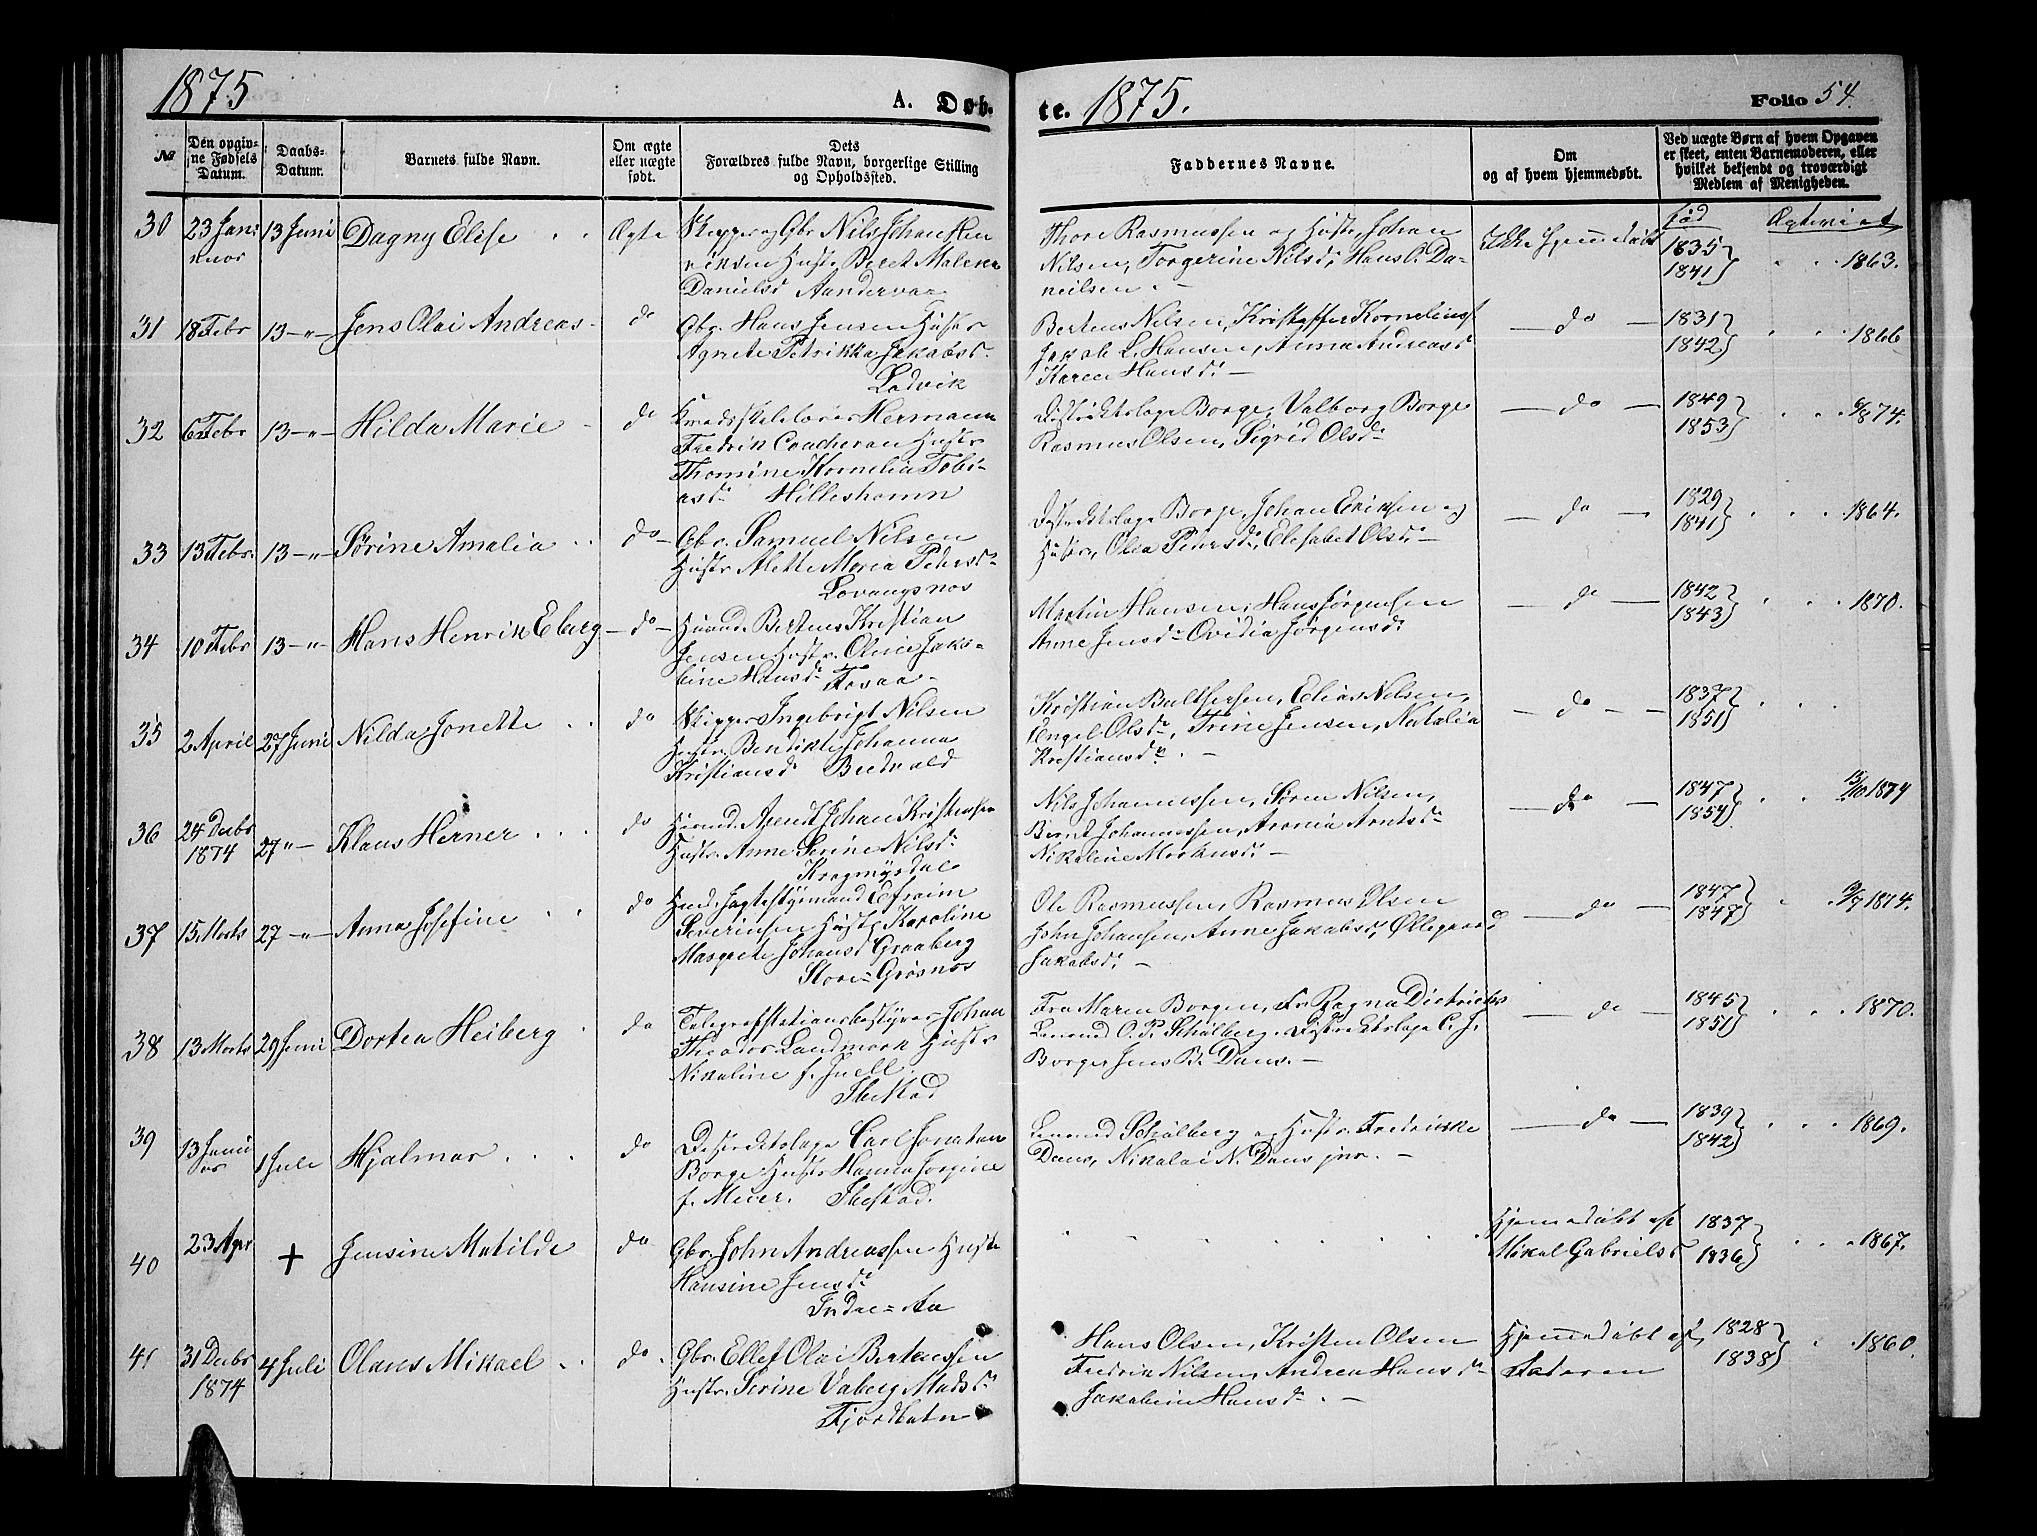 1875
A. Døb-
te. 1875.
Folio 54.
№
Den opgiv-
ne Fødsels
Datum.
Daabs-
Datum.
Barnets fulde Navn.
Om ægte
eller uægte
født.
Dets
Forældres fulde Navn, borgerlige Stilling
og Opholdssted.
Faddernes Navne.
Om
og af hvem hjemmedøbt.
Ved uægte Børn af hvem Opgaven
er skeet, enten Barnemoderen, eller
hvilket bekjendt og troværdigt
Medlem af Menigheden.
fød Ægteviet
30 23 Jan 13 Juni Dagny Elise Ægte
Skipper og Gbr Nils Johan Hen
riksen Hustr Beret Malena
Danielsd Aandervaa
Thore Rasmussen og Hustr, Johan
Nilsen, Torgerine Nilsd, Hans C. Da-
neilsen.
Ikke hjemmedøbt
1835
1841 1863.
31 18 Febr 13 -"- Jens Olai Andreas do
Gbr. Hans Jensen Hustr
Agnete Petrikka Jakobsd.
Ladvik
Berteus Nilsen, Kristoffer Kornelius
Jakob L. Hansen, Anna Andreasd
Karen Hansd.
do
1831
1842 1866
32 6 Febr 13 -"- Hilda Marie do
Kredsskolelærer Hermann
Fredrik Coucheron Hustr
Thomine Kornelia Tobi-
asd Hilleshamn
Distriktslæge Borge, Valborg Borge
Rasmus Olsen, Sigrid Olsd
do
1849
1853 6/8 74.
33 13 Febr. 13 -"- Sørine Amalia do
Gbr. Samuel Nilsen
Hustr Alette Maria Pedersd
Lovangsnos
Distriktslæge Borge, Johan Eriksen og
Hustr, Olea Pedersd, Elisabet Olsd
do
1829
1841 1864.
34 10 Febr 13 -"- Hans Henrik Eberg do
Huand. Berteus Kristian
Jensen Hustr. Oline Jako-
bine Hansd Fosaa
Martin Hansen, Hans Jørgensen
Anne Jensd Ovidia Jørgensd
do
1842
1843 1870.
35 2 April 27 Juni Nilda Jonette do
Skipper Ingebrigt Nilsen
Hustr. Bendikte Johanna
Kristiansd Breivold
Kristian Balthersen, Elias Nilsen,
Engel Olsd, Trine Jensen, Natalia
Kristiansd
do
1837
1851
36 24 Decbr
1874 27 "- Klaus Herner do
Huand. Arendt Johan Kristensen
Hustr. Anne Serine Nilsd
Krogmyrdal
Nils Johannessen, Søren Nilsen,
Bernt Johannessen, Aronia Arntsd
Nikoline Markusd
do
1847
1854 12/10 1874
37 15 Marts 27 -"- Anna Josefine do
Hud. Jagtestyrmand Efraim
Severinsen Hustr Karoline
Margrete Johansd Graaberg
Store-Grøsnos
Ole Rasmussen, Rasmus Olsen
John Johansen, Anne Jakobsd, Øllegaard
Jakobsd.
do
1847
1847 9/7 1874.
38 13 Marts 29 Juni Dortea Heiberg do
Telegrafstationsbestyrer Johan
Theodor Landmark Hustr
Nikoline f. Juell
Ibestad
Fru Maren Borgen, Fr. Ragna Dietrichs
Lensmd O. P. Schølberg, Distriktslæge C. J.
Borge, Jens B. Dans.
do
1845
1851 1870.
39 13 Janu
ar 1 Juli Hjalmar do
Distriktslæge Carl Jonatan
Borge Hustr Hanna Jorgine
f. Meier. Ibestad.
Lensmd Schølberg og Hustr. Fredrikke
Dans, Nikolai N. Dans jnr.
do
1839
1842 1869.
40 23 Apr + Jensine Matilde do
Gbr. John Andreassen Hustr
Hansine Jensd
Indre-Aa
Hjemmedøbt af
Mikal Gabrielsd
1837
1836 1867.
41 31 Decbr
1874 4 Juli Olaus Mikael do
Gbr. Ellef Olai Berteussen
Hustr. Serine Vaberg Madsd
Fjordbotn
Hans Olsen, Kristen Olsen
Fredrik Nilsen, Andrea Hansd
Jakobine Hansd
Hjemmedøbt af
Faderen
1828
1838 1860.